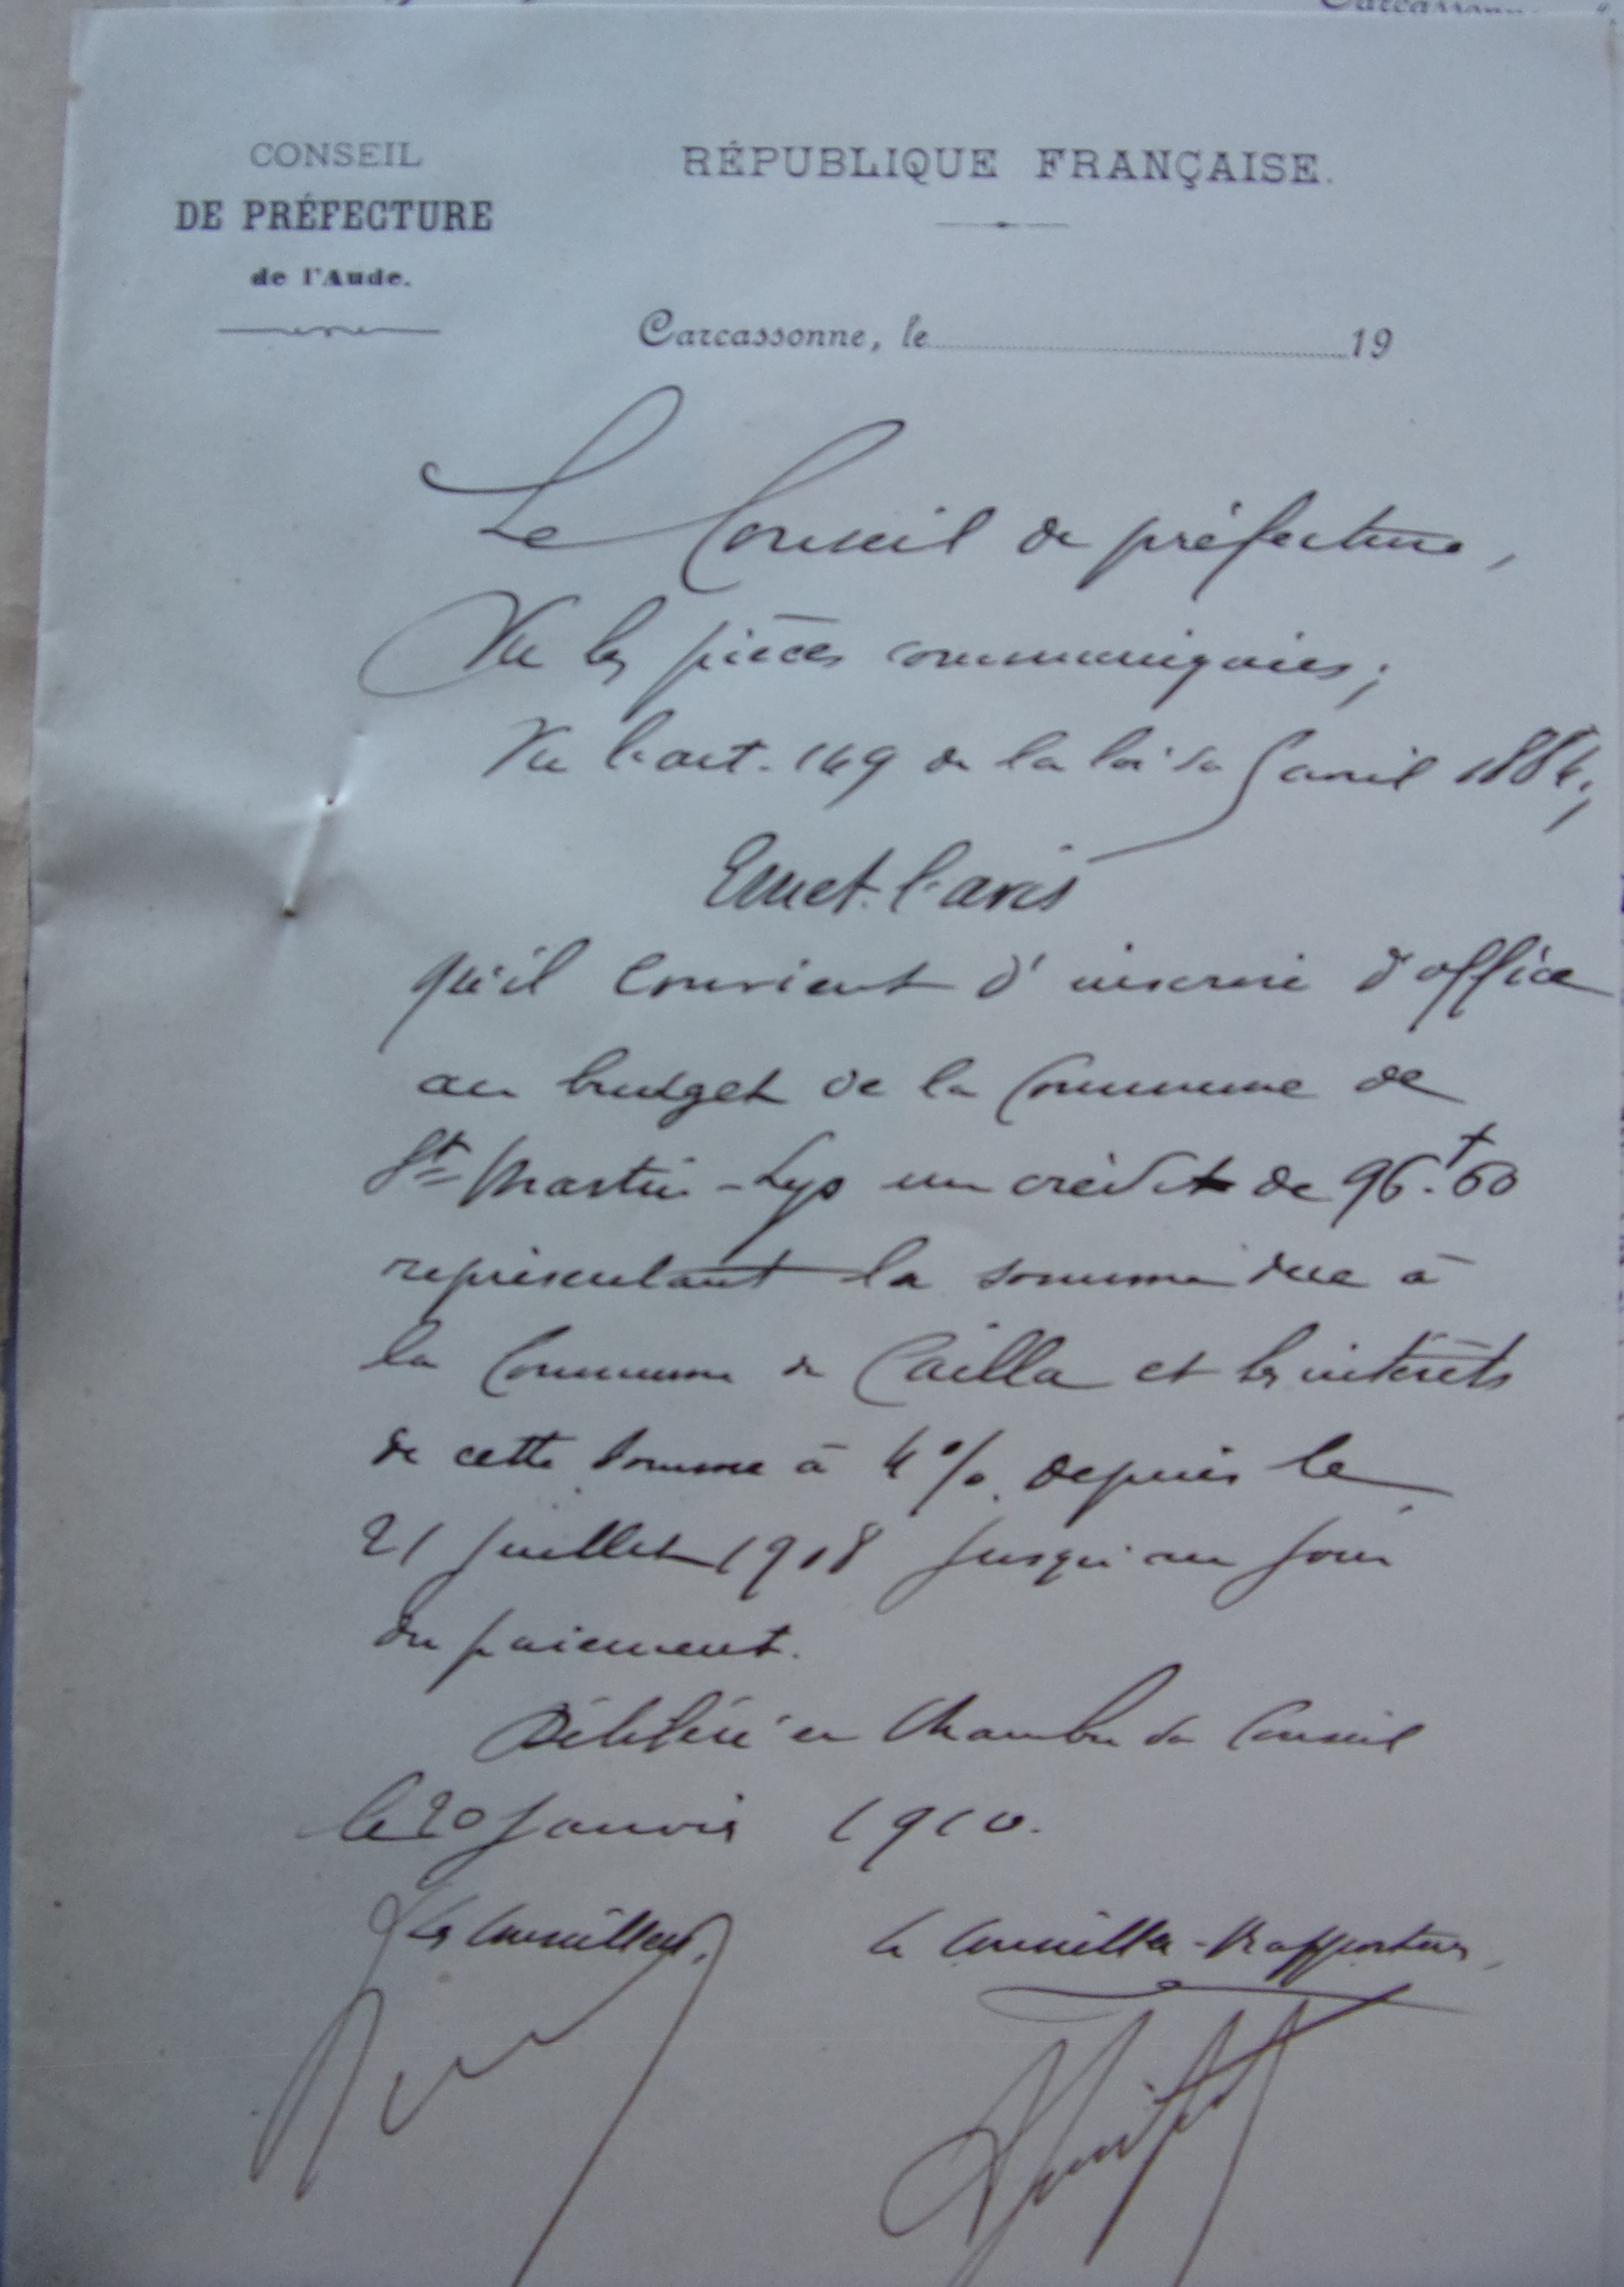 CONSEIL
DE PRÉFECTURE
de l'Aude.
RÉPUBLIQUE FRANÇAISE.
Carcassonne, le 19
Le Conseil de préfecture,
Vu les pièces communiquées;
Vu l'art. 149 de la loi du 5 avril 1884;
Emet l'avis
qu'il convient d'inscrire d'office
au budget de la Commune de
St Martin-Lys un crédit de 96f.60
représentant la somme due à
la Commune de Cailla et les intérêts
de cette somme à 4%. depuis le
21 Juillet 1908 jusqu'au jour
du paiement.
Délibéré en Chambre du Conseil
le 20 Janvier 1910.
Les Conseillers,
Le Conseiller-Rapporteur,